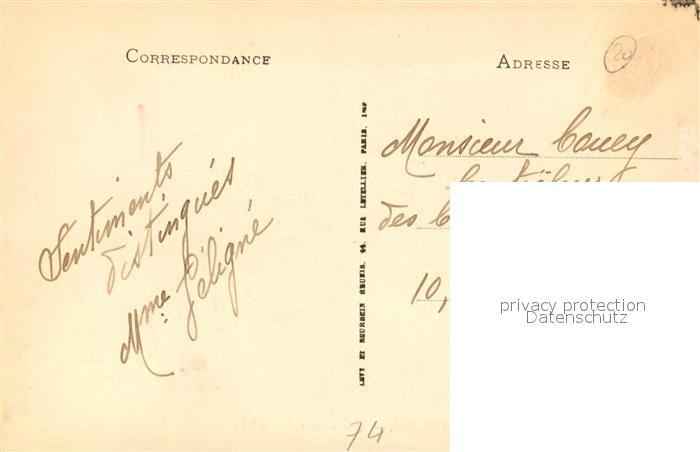 CORRESPONDANCE
Sentiments
distingués
Mme Géligné
LEVY ET NEURDEIN RÉUNIS, 44, RUE LETELLIER, PARIS, IMP
ADRESSE
20
Monsieur
des
10,
privacy protection
Datenschutz
74